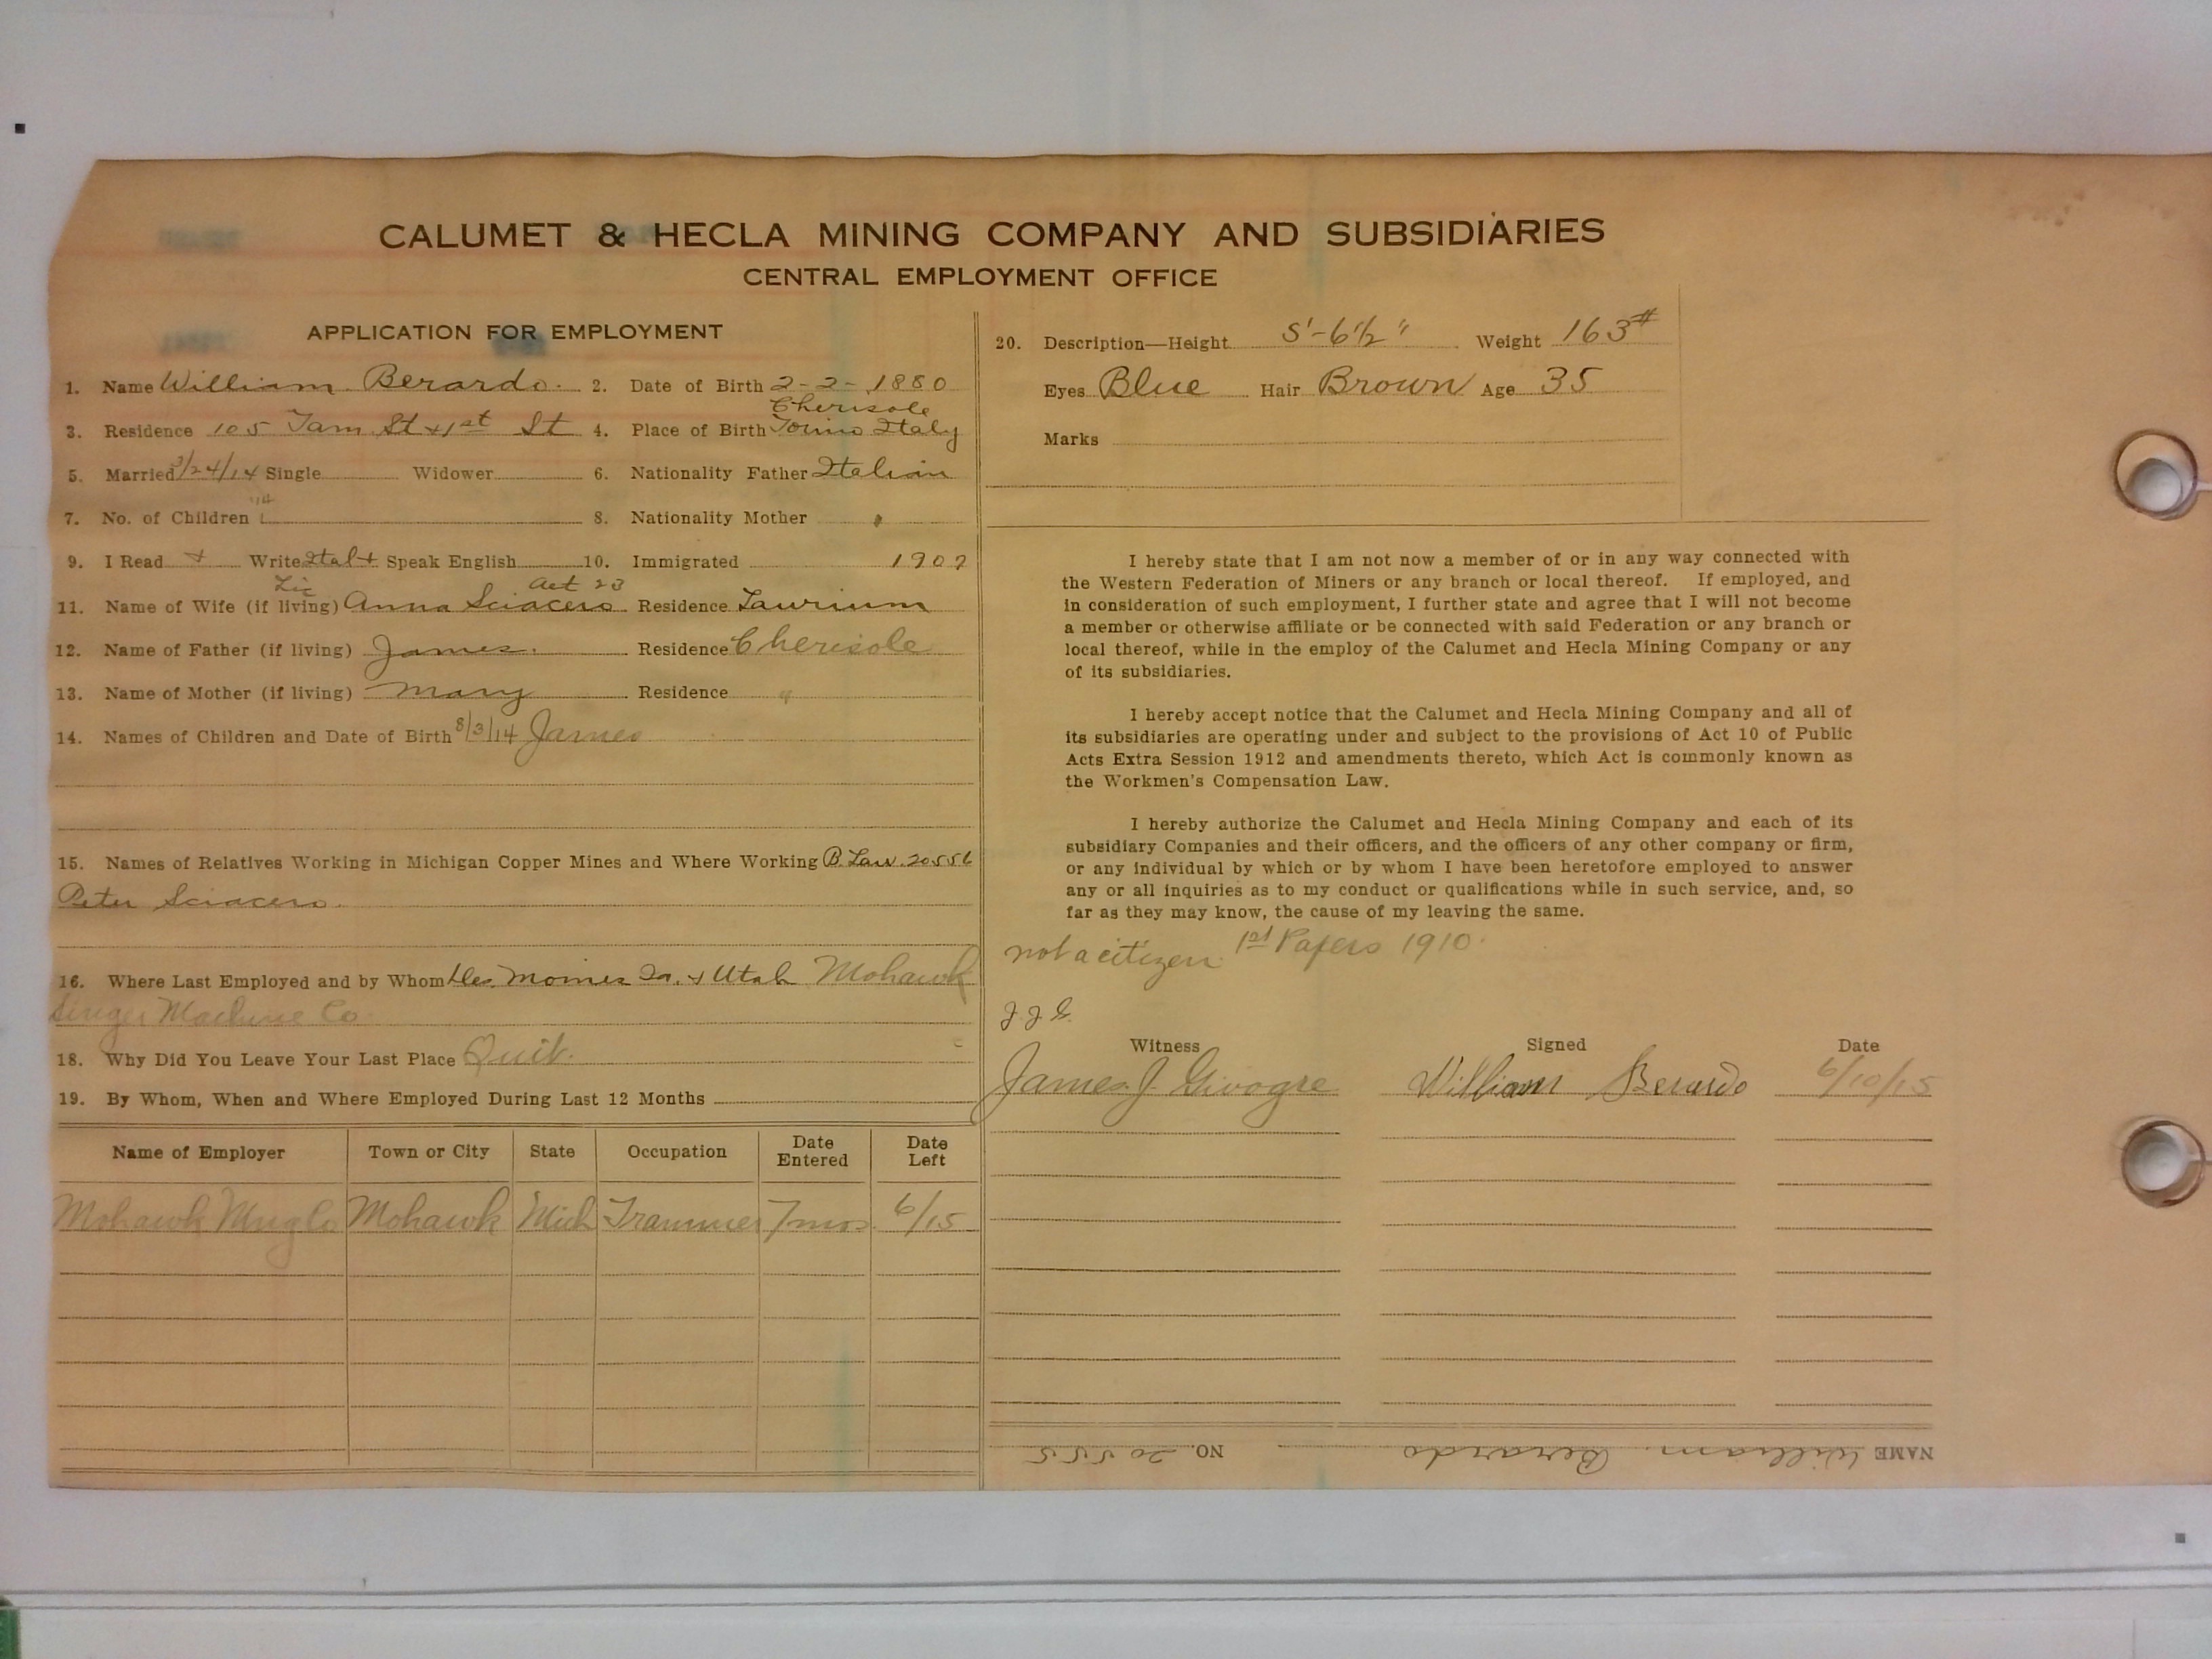 CALUMET & HECLA MINING COMPANY AND SUBSIDIARIES
CENTRAL EMPLOYMENT OFFICE
APPLICATION FOR EMPLOYMENT
1. Name William Berardo. 2. Date of Birth 2-2-1880
Cherisole
3. Residence 105 Tam St + 1st St 4. Place of Birth Torino Italy
5. Married 3/24/14 Single Widower 6. Nationality Father Italian
7. No. of Children 1 8. Nationality Mother "
9. I Read + Write Ital + Speak English 10. Immigrated 1902
Age 23
11. Name of Wife (if living) Anna Sciacero Residence Laurium
12. Name of Father (if living) James. Residence Cherisole
13. Name of Mother (if living) Mary Residence "
14. Names of Children and Date of Birth 8/3/14 James
15. Names of Relatives Working in Michigan Copper Mines and Where Working B. Law. 20556
Peter Sciacero.
16. Where Last Employed and by Whom Des Moines Ia. + Utah Mohawk
Singer Machine Co
18. Why Did You Leave Your Last Place Quit.
19. By Whom, When and Where Employed During Last 12 Months
Name of Employer Town or City State Occupation Date Entered Date Left
Mohawk Mng Co Mohawk Mich Trammer 7 mos. 6/15
20. Description—Height 5'-6½" Weight 163#
Eyes Blue Hair Brown Age 35
Marks
I hereby state that I am not now a member of or in any way connected with
the Western Federation of Miners or any branch or local thereof. If employed, and
in consideration of such employment, I further state and agree that I will not become
a member or otherwise affiliate or be connected with said Federation or any branch or
local thereof, while in the employ of the Calumet and Hecla Mining Company or any
of its subsidiaries.
I hereby accept notice that the Calumet and Hecla Mining Company and all of
its subsidiaries are operating under and subject to the provisions of Act 10 of Public
Acts Extra Session 1912 and amendments thereto, which Act is commonly known as
the Workmen's Compensation Law.
I hereby authorize the Calumet and Hecla Mining Company and each of its
subsidiary Companies and their officers, and the officers of any other company or firm,
or any individual by which or by whom I have been heretofore employed to answer
any or all inquiries as to my conduct or qualifications while in such service, and, so
far as they may know, the cause of my leaving the same.
not a citizen. 1st Papers 1910.
J.J.G.
Witness Signed Date
James J. Givogre William Berardo 6/10/15
NAME William. Berardo NO. 20555